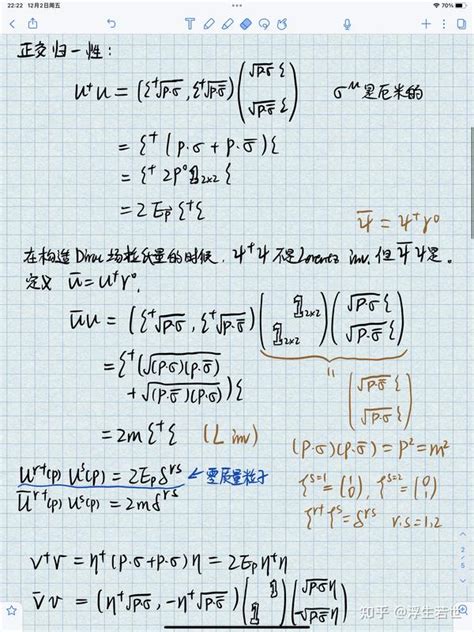 22:22 12月2日周五
70%
正交归一性：
u†u = (ξ†√p·σ, ξ†√p·σ̄) (√p·σ ξ
√p·σ̄ ξ) σ^μ是厄米的
= ξ†(p·σ + p·σ̄)ξ
= ξ† 2p⁰ 𝟙₂ₓ₂ ξ
= 2E_p⃗ ξ†ξ
ψ̄ = ψ†γ⁰
在构造Dirac场拉氏量的时候，ψ†ψ 不是Lorentz inv. 但 ψ̄ψ是。
定义 ū = u†γ⁰,
ūu = (ξ†√p·σ, ξ†√p·σ̄) ( 𝟙₂ₓ₂
𝟙₂ₓ₂ ) (√p·σ ξ
√p·σ̄ ξ)
= ξ†(√(p·σ)(p·σ̄)
+ √(p·σ̄)(p·σ))ξ
॥
(√p·σ̄ ξ
√p·σ ξ)
= 2m ξ†ξ (L inv)
(p·σ)(p·σ̄) = p² = m²
u^r†(p) u^s(p) = 2E_p δ^rs ← 零质量粒子
ξ^s=1 = (1 0), ξ^s=2 = (0 1)
ū^r(p) u^s(p) = 2m δ^rs
ξ^r† ξ^s = δ^rs r.s=1,2
v†v = η†(p·σ + p·σ̄)η = 2E_p η†η
v̄v = (η†√p·σ, -η†√p·σ̄) ( 𝟙
𝟙 ) (√p·σ η
√p·σ̄ η)
2/5
知乎 @浮生若世